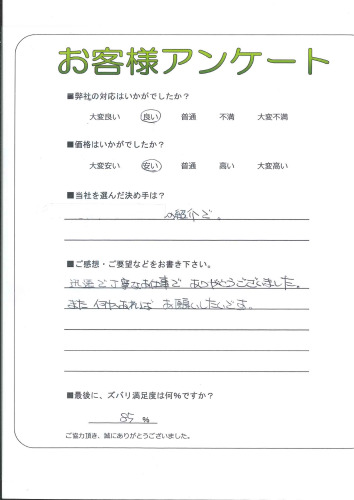 お客様アンケート
■弊社の対応はいかがでしたか?
大変良い 良い 普通 不満 大変不満
■価格はいかがでしたか?
大変安い 安い 普通 高い 大変高い
■当社を選んだ決め手は?
の紹介で。
■ご感想・ご要望などをお書き下さい。
迅速で丁寧なお仕事で ありがとうございました。
また 何かあれば お願いしたいです。
■最後に、ズバリ満足度は何%ですか?
85 %
ご協力頂き、誠にありがとうございました。